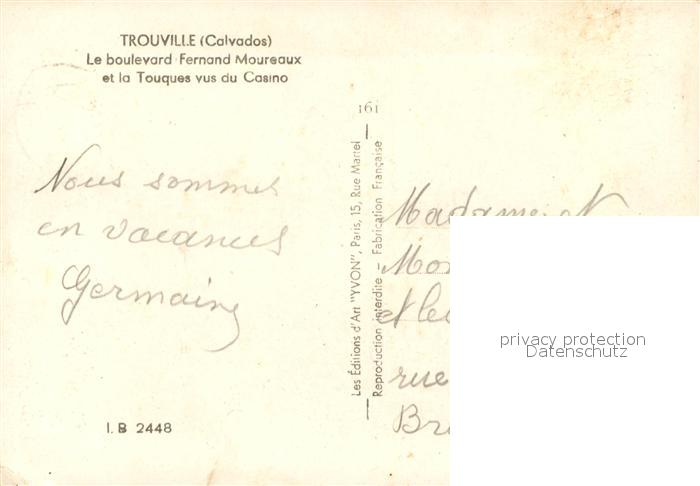 TROUVILLE (Calvados)
Le boulevard Fernand Moureaux
et la Touques vus du Casino
161
Nous sommes
en vacances
Germaine
I. B 2448
Les Éditions d'Art "YVON", Paris, 15, Rue Martel
Reproduction interdite — Fabrication Française
Madame
rue
privacy protection
Datenschutz